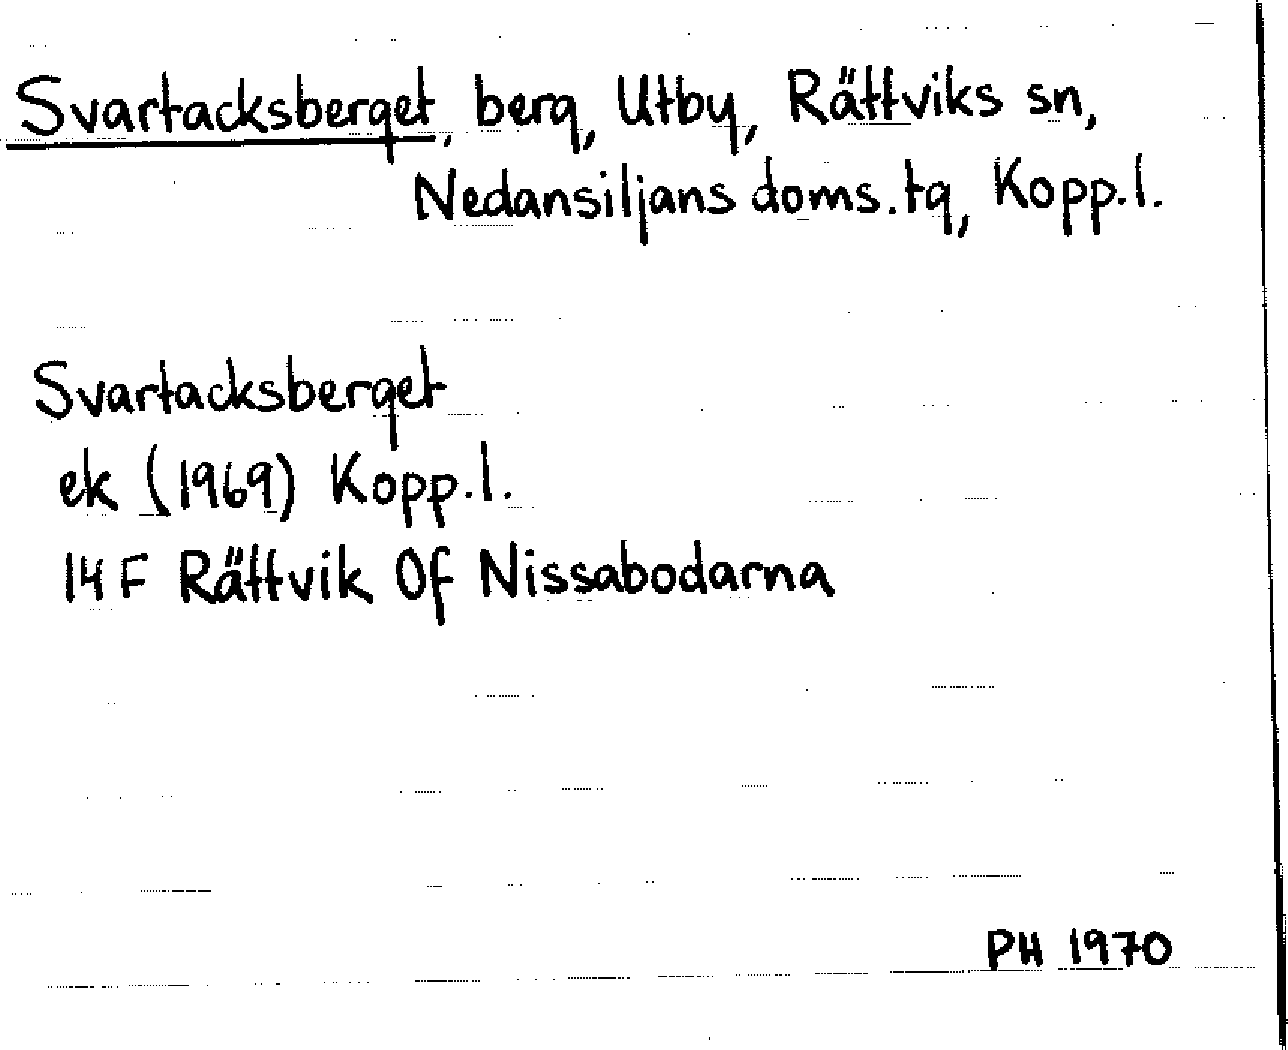 Svartacksberget, berg, Utby, Rättviks sn,
Nedansiljans doms.tg, Kopp.l.
Svartacksberget
ek (1969) Kopp.l.
14 F Rättvik 0f Nissabodarna
PH 1970